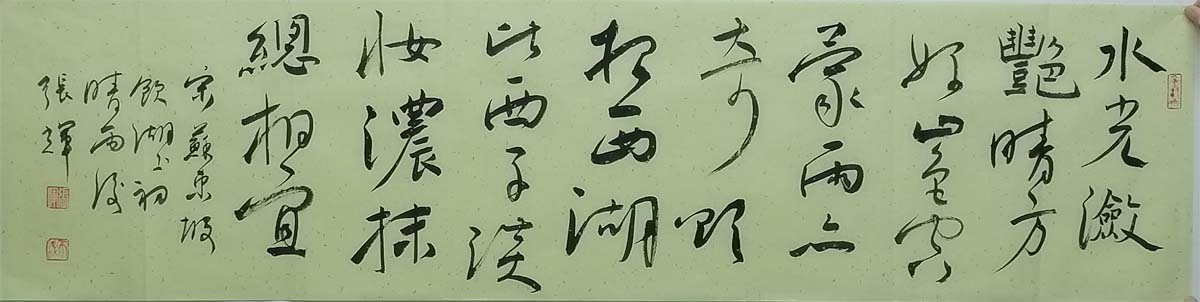 水光瀲
艷晴方
好山色空
蒙雨亦
奇欲
把西湖
比西子淡
妆濃抹
總相宜
宋蘇東坡
飲湖上初
晴雨後
張輝